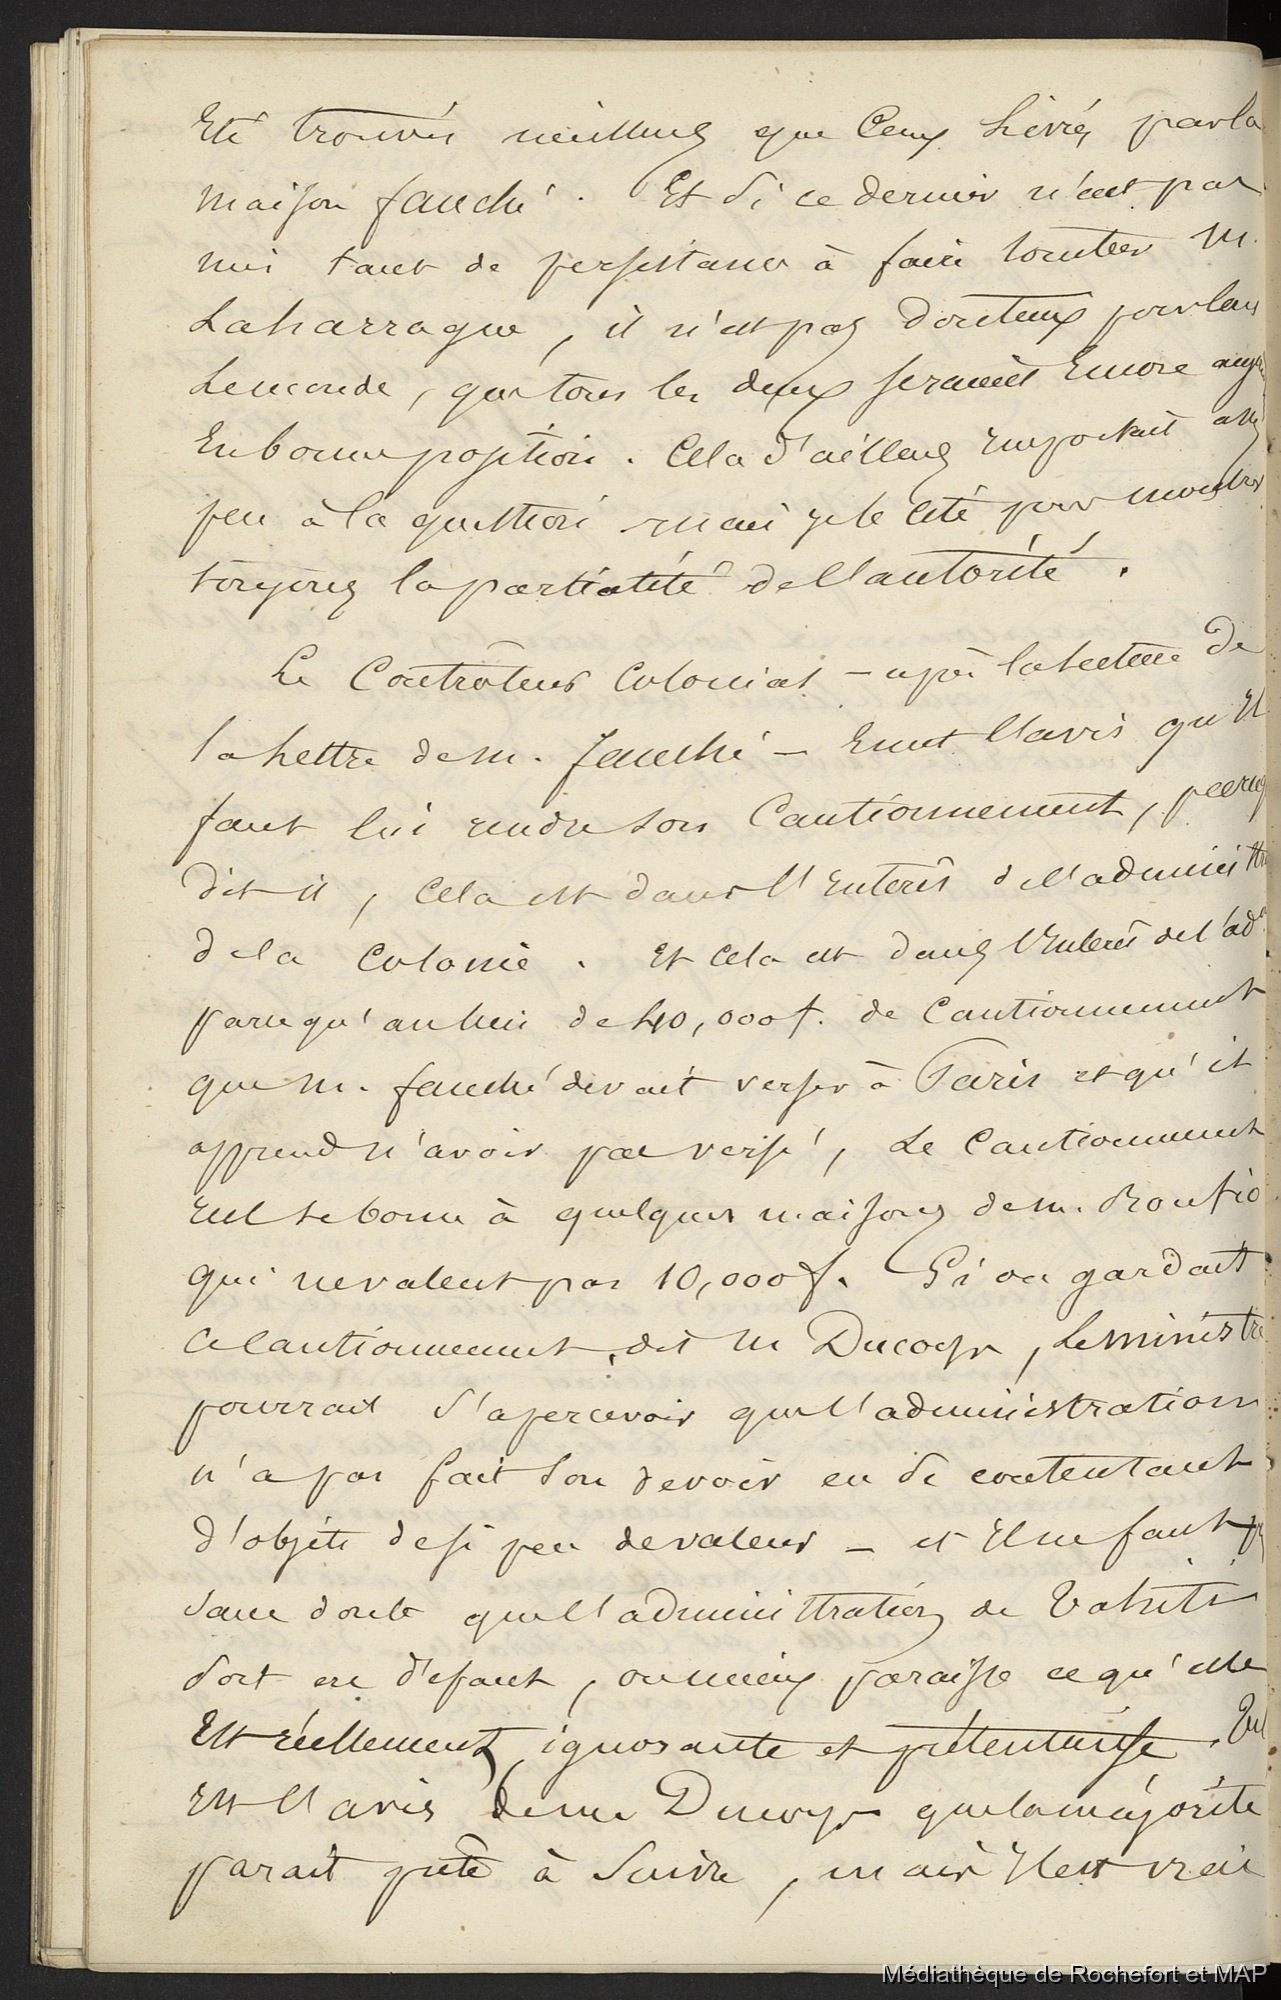 Eté trouvés meilleurs que Ceux livrés par la
maison fauché. Et Si ce dernier n'eut pas
mis tant de persistance à faire tomber M.
Laharrague, il n'est pas douteux pour tout
Le monde, que tous les deux seraient Encore auj
En bonne position. Cela d'ailleurs importait assez
peu à la question mais je le cite pour montrer
toujours la partialité de l'autorité.
Le Contrôleur Colonial – après la lecture de
la lettre de m. fauché – Emet l'avis qu'Il
faut lui rendre son Cautionnement, parceq
dit il, Cela est dans l'Interêt de l'administ
de la Colonie. Et Cela est dans l'Interêt de l'ad
parcequ'au lieu de 40,000f. de Cautionnement
que M. fauché devait verser à Paris et qu'il
apprend n'avoir pas versé, Le Cautionnement
réel se borne à quelques maisons de M. Bonfio
qui ne valent pas 10,000f. Si on gardait
Ce Cautionnement, dit M Ducoys, Le ministre
pourrait S'apercevoir que l'administration
n'a pas fait Son devoir en Se contentant
d'objets de si peu de valeur – et Il ne faut p
Sans doute que l'administration de Tahiti
Soit en défaut, ou mieux paraisse ce qu'elle
Est réellement, ignorante et prétentieuse. Tel
Est l'avis de M Ducoys que la majorité
parait prête à Suivre, mais Il est vrai
Médiathèque de Rochefort et MAP